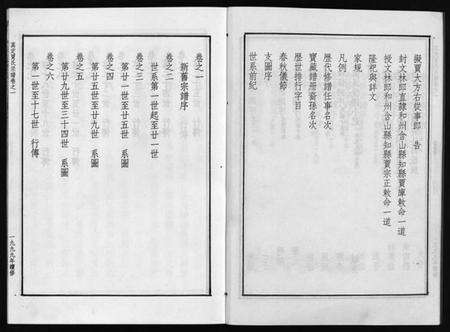 擬賈大方右從事郎　告
封文林郎直隸和州含山縣知縣賈庫敕命一道
授文林郎和州含山縣知縣賈宗正敕命一道
薩祀與詳文
家規
凡例
歷代修譜任事名次
寶藏譜冊裔孫名次
歷世排行字目
春秋儀節
支圖序
世系前紀
卷之一
新舊宗譜序
卷之二
世系第一世起至廿一世
卷之三
第廿一世至廿五世　系圖
卷之四
第廿五世至廿九世　系圖
卷之五
第廿九世至三十四世　系圖
卷之六
第一世至十七世　行傳
賈氏宗譜卷之一
一九九九年續修